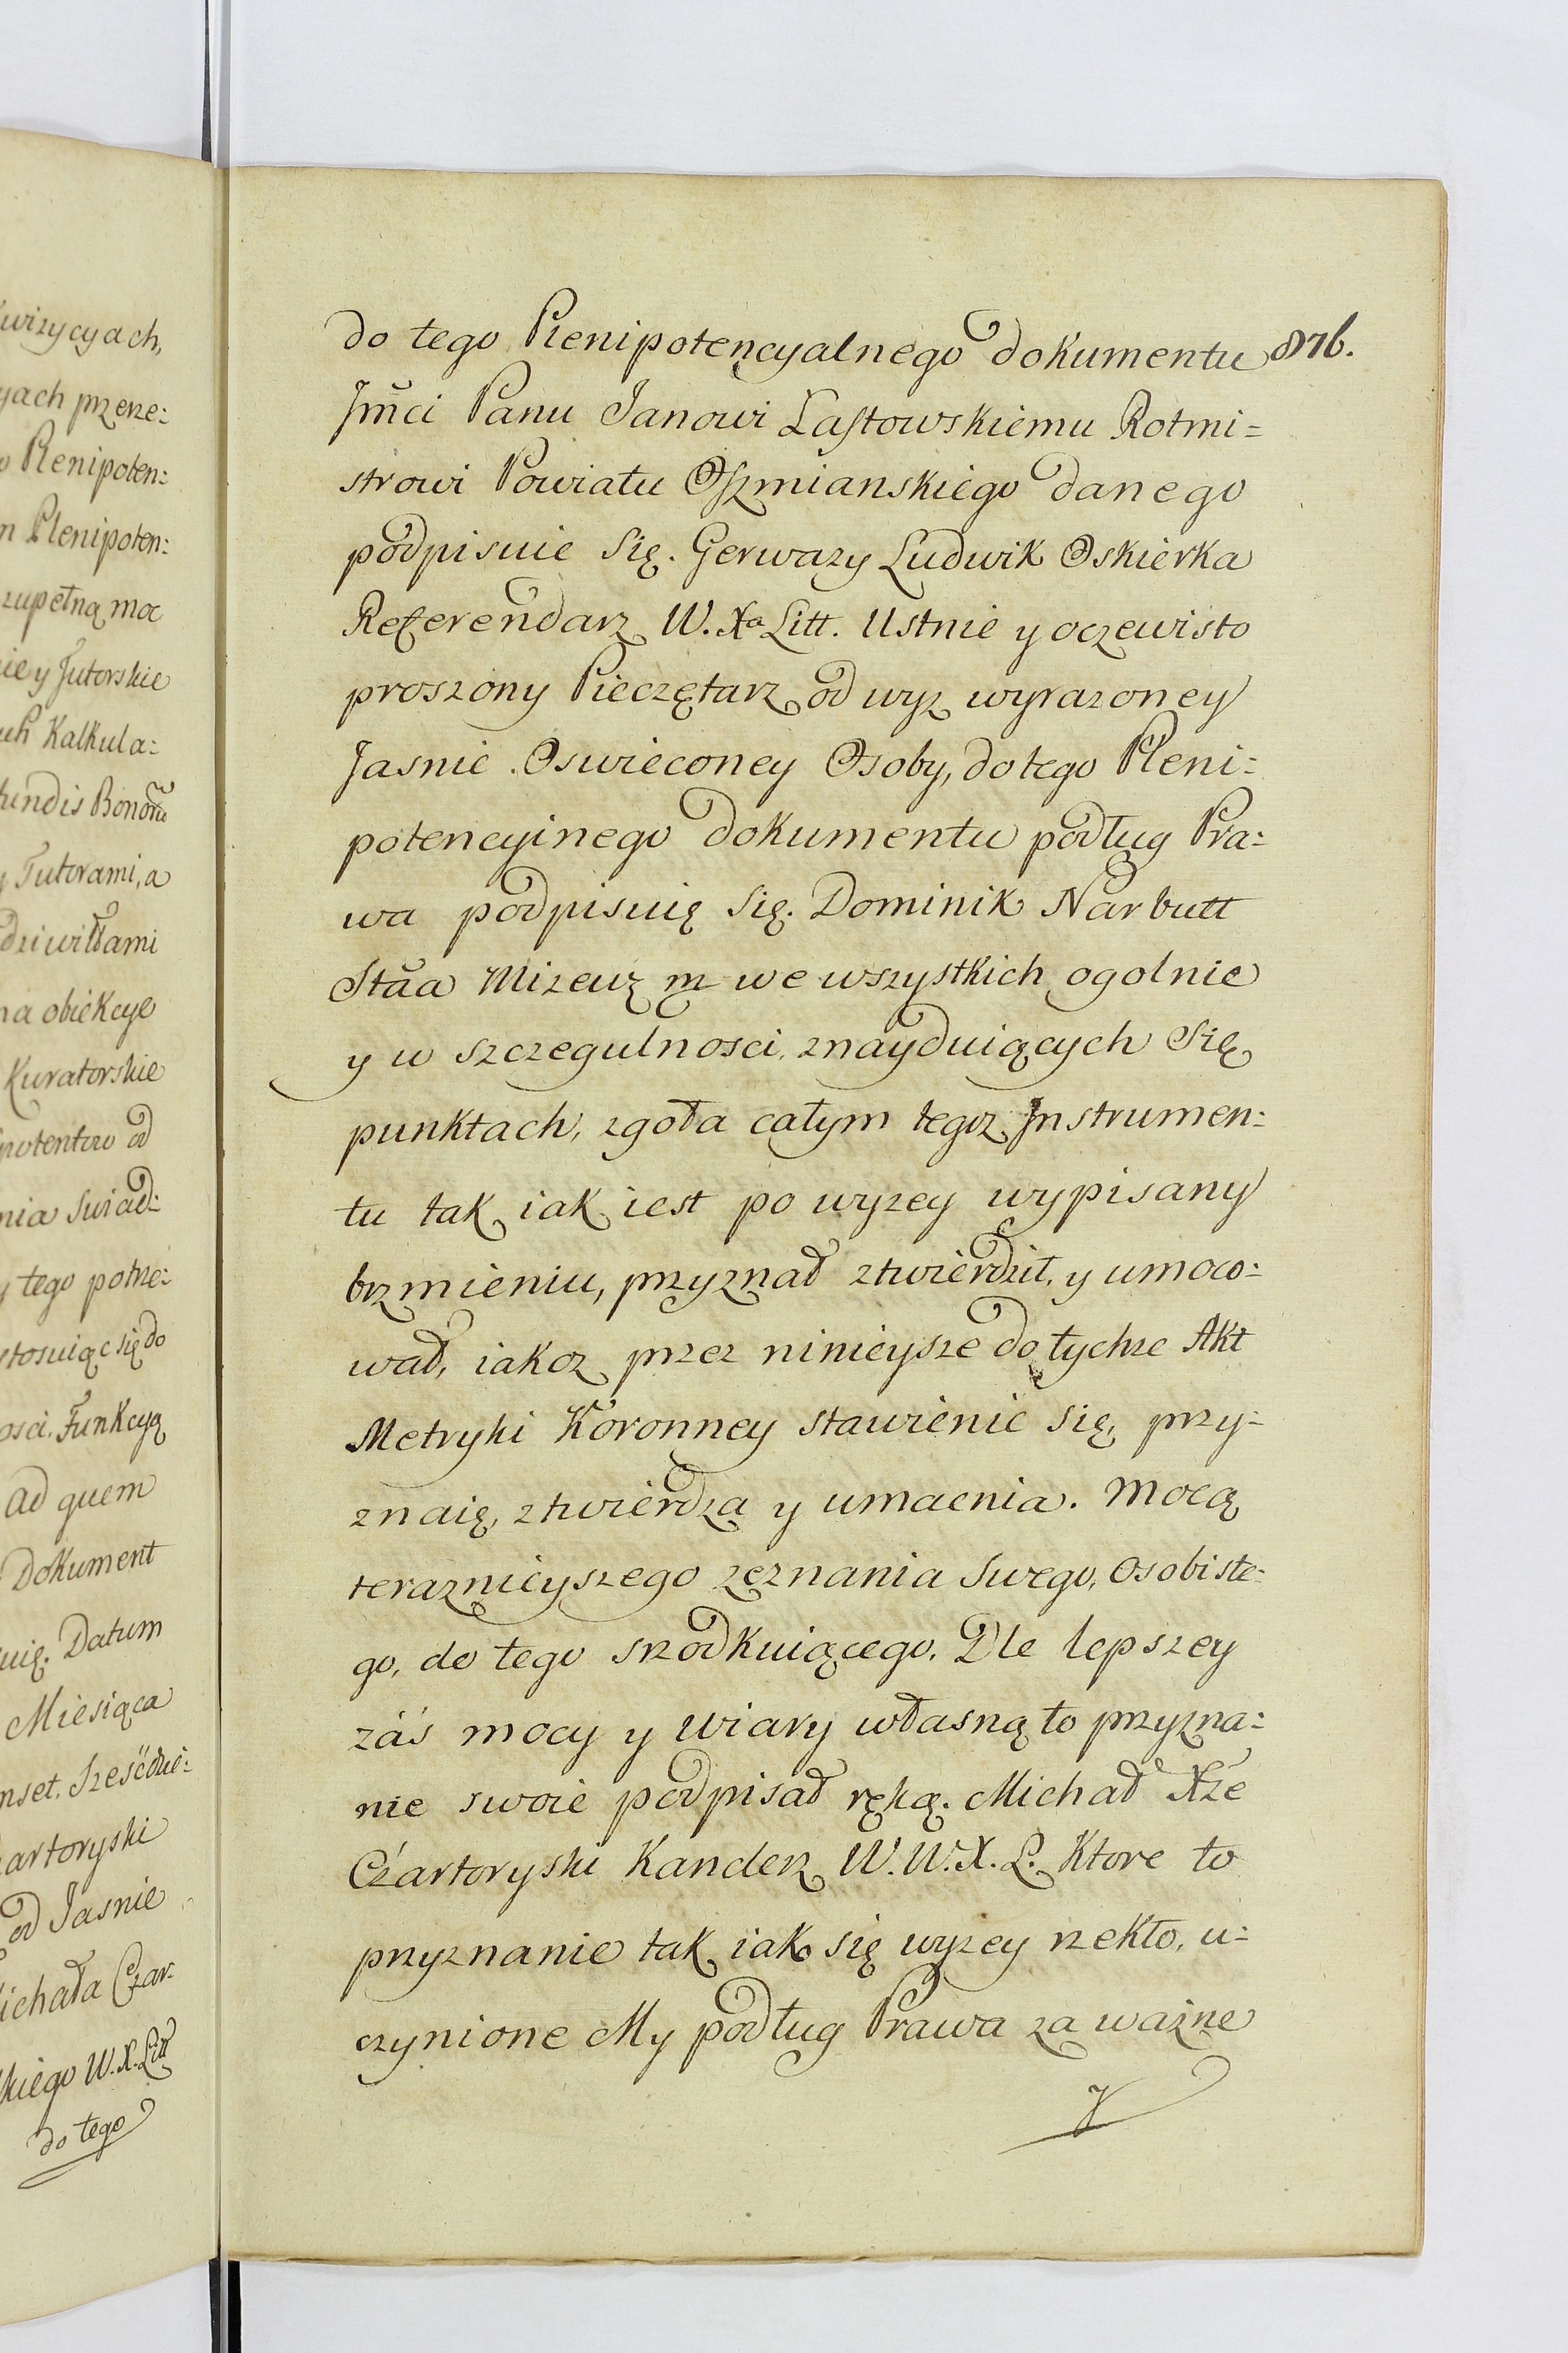 wizycyach,
yach przerze:
Plenipoten:
m Plenipoten:
zupełną moc
ie y Tutorskie
Kalkula:
fundis Bonorū
Tutorami, a
dziwiłłami
na obiekcye
Kuratorskie
potentow od
nia Swiad:
y tego potrze:
stosuiąc się do
osci. Funkcyą
ad quem
Dokument
uię. Datum
Miesiąca
nset. Sześćdzie:
zartoryski
od Jasnie
ichała Czar:
kiego W.X. Litt
do tego
do tego Plenipotencyalnego dokumentu 876.
Jmći Panu Janowi Łastowskiemu Rotmi=
strowi Powiatu Oszmianskiego danego
podpisuie się. Gerwazy Ludwik Oskierka
Referendarz W. Xa Litt. Ustnie y oczewisto
proszony Pieczętarz od wyz wyrazoney
Jasnie Oswieconey Osoby, do tego Pleni:
potencyinego dokumentu podług Pra:
wa podpisuię się. Dominik Narbutt
Stāa Mizewz m we wszystkich ogolnie
y w szczegulnosci znayduiących się
punktach, zgoła całym tegoz Instrumen:
tu tak iak iest po wyzey wypisany
brzmieniu, przyznał ztwierdził, y umoco:
wał, iakoz przez ninieysze do tychze Akt
Metryki Koronney stawienie się, przy:
znaię, ztwierdza y umacnia. Mocą
teraznieyszego zeznania swego, osobiste:
go, do tego srzodkuiącego. Dle lepszey
záś mocy y wiary własną to przyzna:
nie swoie podpisał ręką. Michał Xże
Czartoryski Kanclerz W. W. X. L. Ktore to
przyznanie tak iako się wyzey rzekło, u:
czynione My podług Prawa za wazne
y